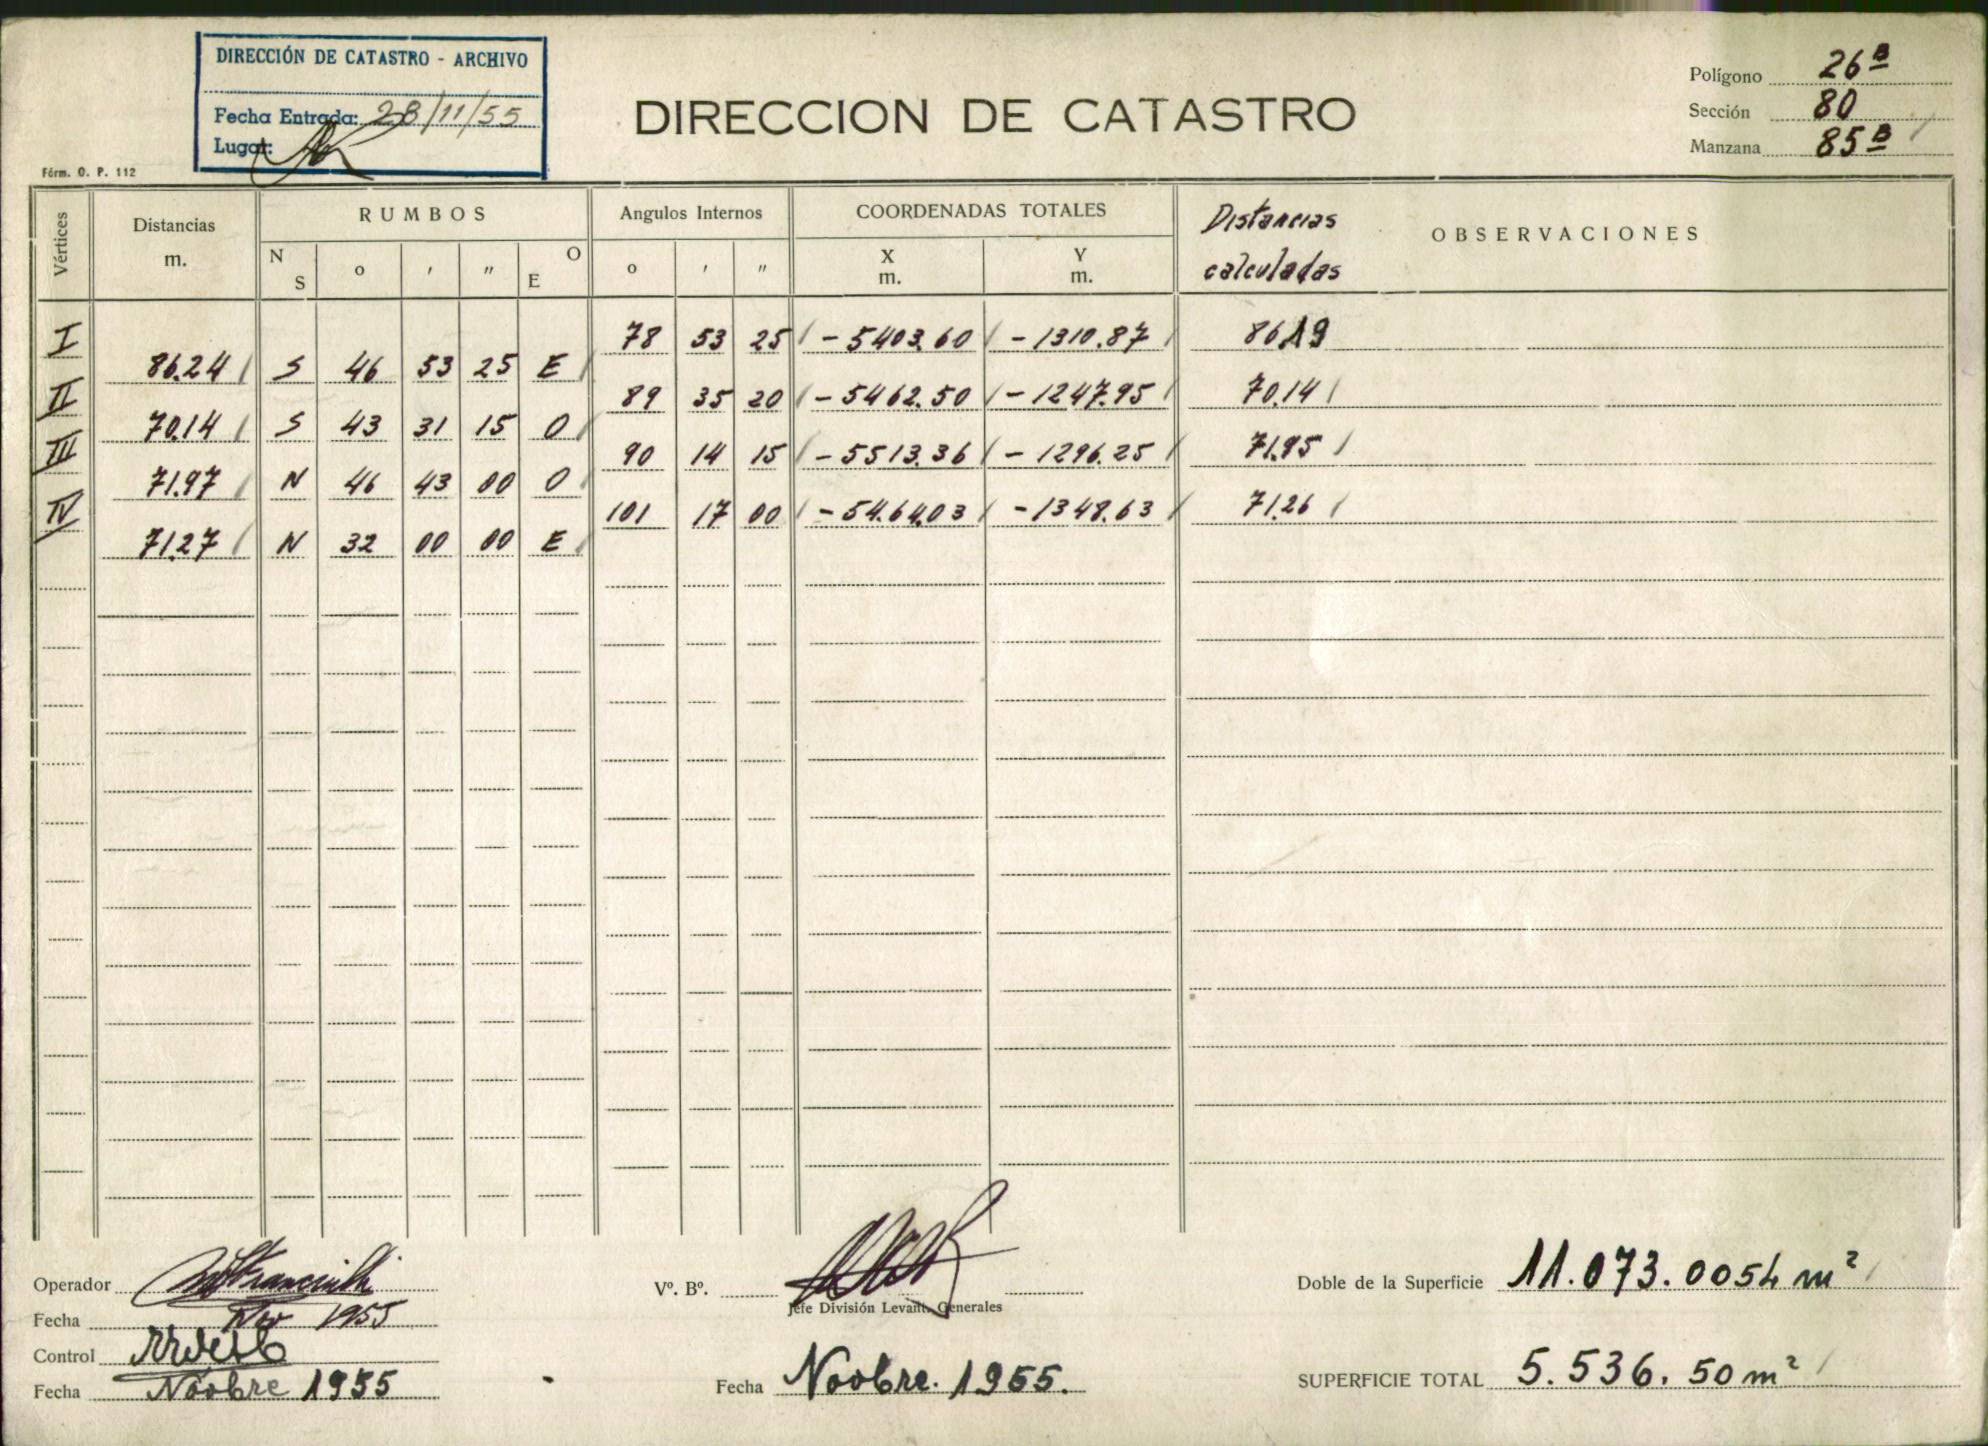 DIRECCIÓN DE CATASTRO - ARCHIVO
Fecha Entrada: 28/11/55
Lugar:
Fórm. O. P. 112
DIRECCION DE CATASTRO
Polígono 26 B
Sección 80
Manzana 85 B
Vértices
Distancias
m.
RUMBOS
N S o ′ ″ E O
Angulos Internos
o ′ ″
COORDENADAS TOTALES
X m. Y m.
Distancias calculadas
OBSERVACIONES
I 78 53 25 -5403.60 -1310.87 86.19
86.24 S 46 53 25 E
II 89 35 20 -5462.50 -1247.95 70.14
70.14 S 43 31 15 O
III 90 14 15 -5513.36 -1296.25 71.95
71.97 N 46 43 00 O
IV 101 17 00 -5464.03 -1348.63 71.26
71.27 N 32 00 00 E
Operador
Fecha Nov 1955
Control
Fecha Novbre 1955
Vº. Bº.
Jefe División Levant. Generales
Fecha Novbre. 1955.
Doble de la Superficie 11.073.0054 m²
SUPERFICIE TOTAL 5.536.50 m²